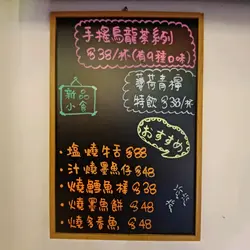 手搖烏龍茶系列
$38/杯(有9種口味)
薄荷青檸
特飲 $38/杯
新品
小食
おすすめ
• 塩燒牛舌 $88
• 汁燒墨魚仔 $48
• 燒鱈魚裙 $38
• 燒墨魚餅 $48
• 燒多春魚 $48